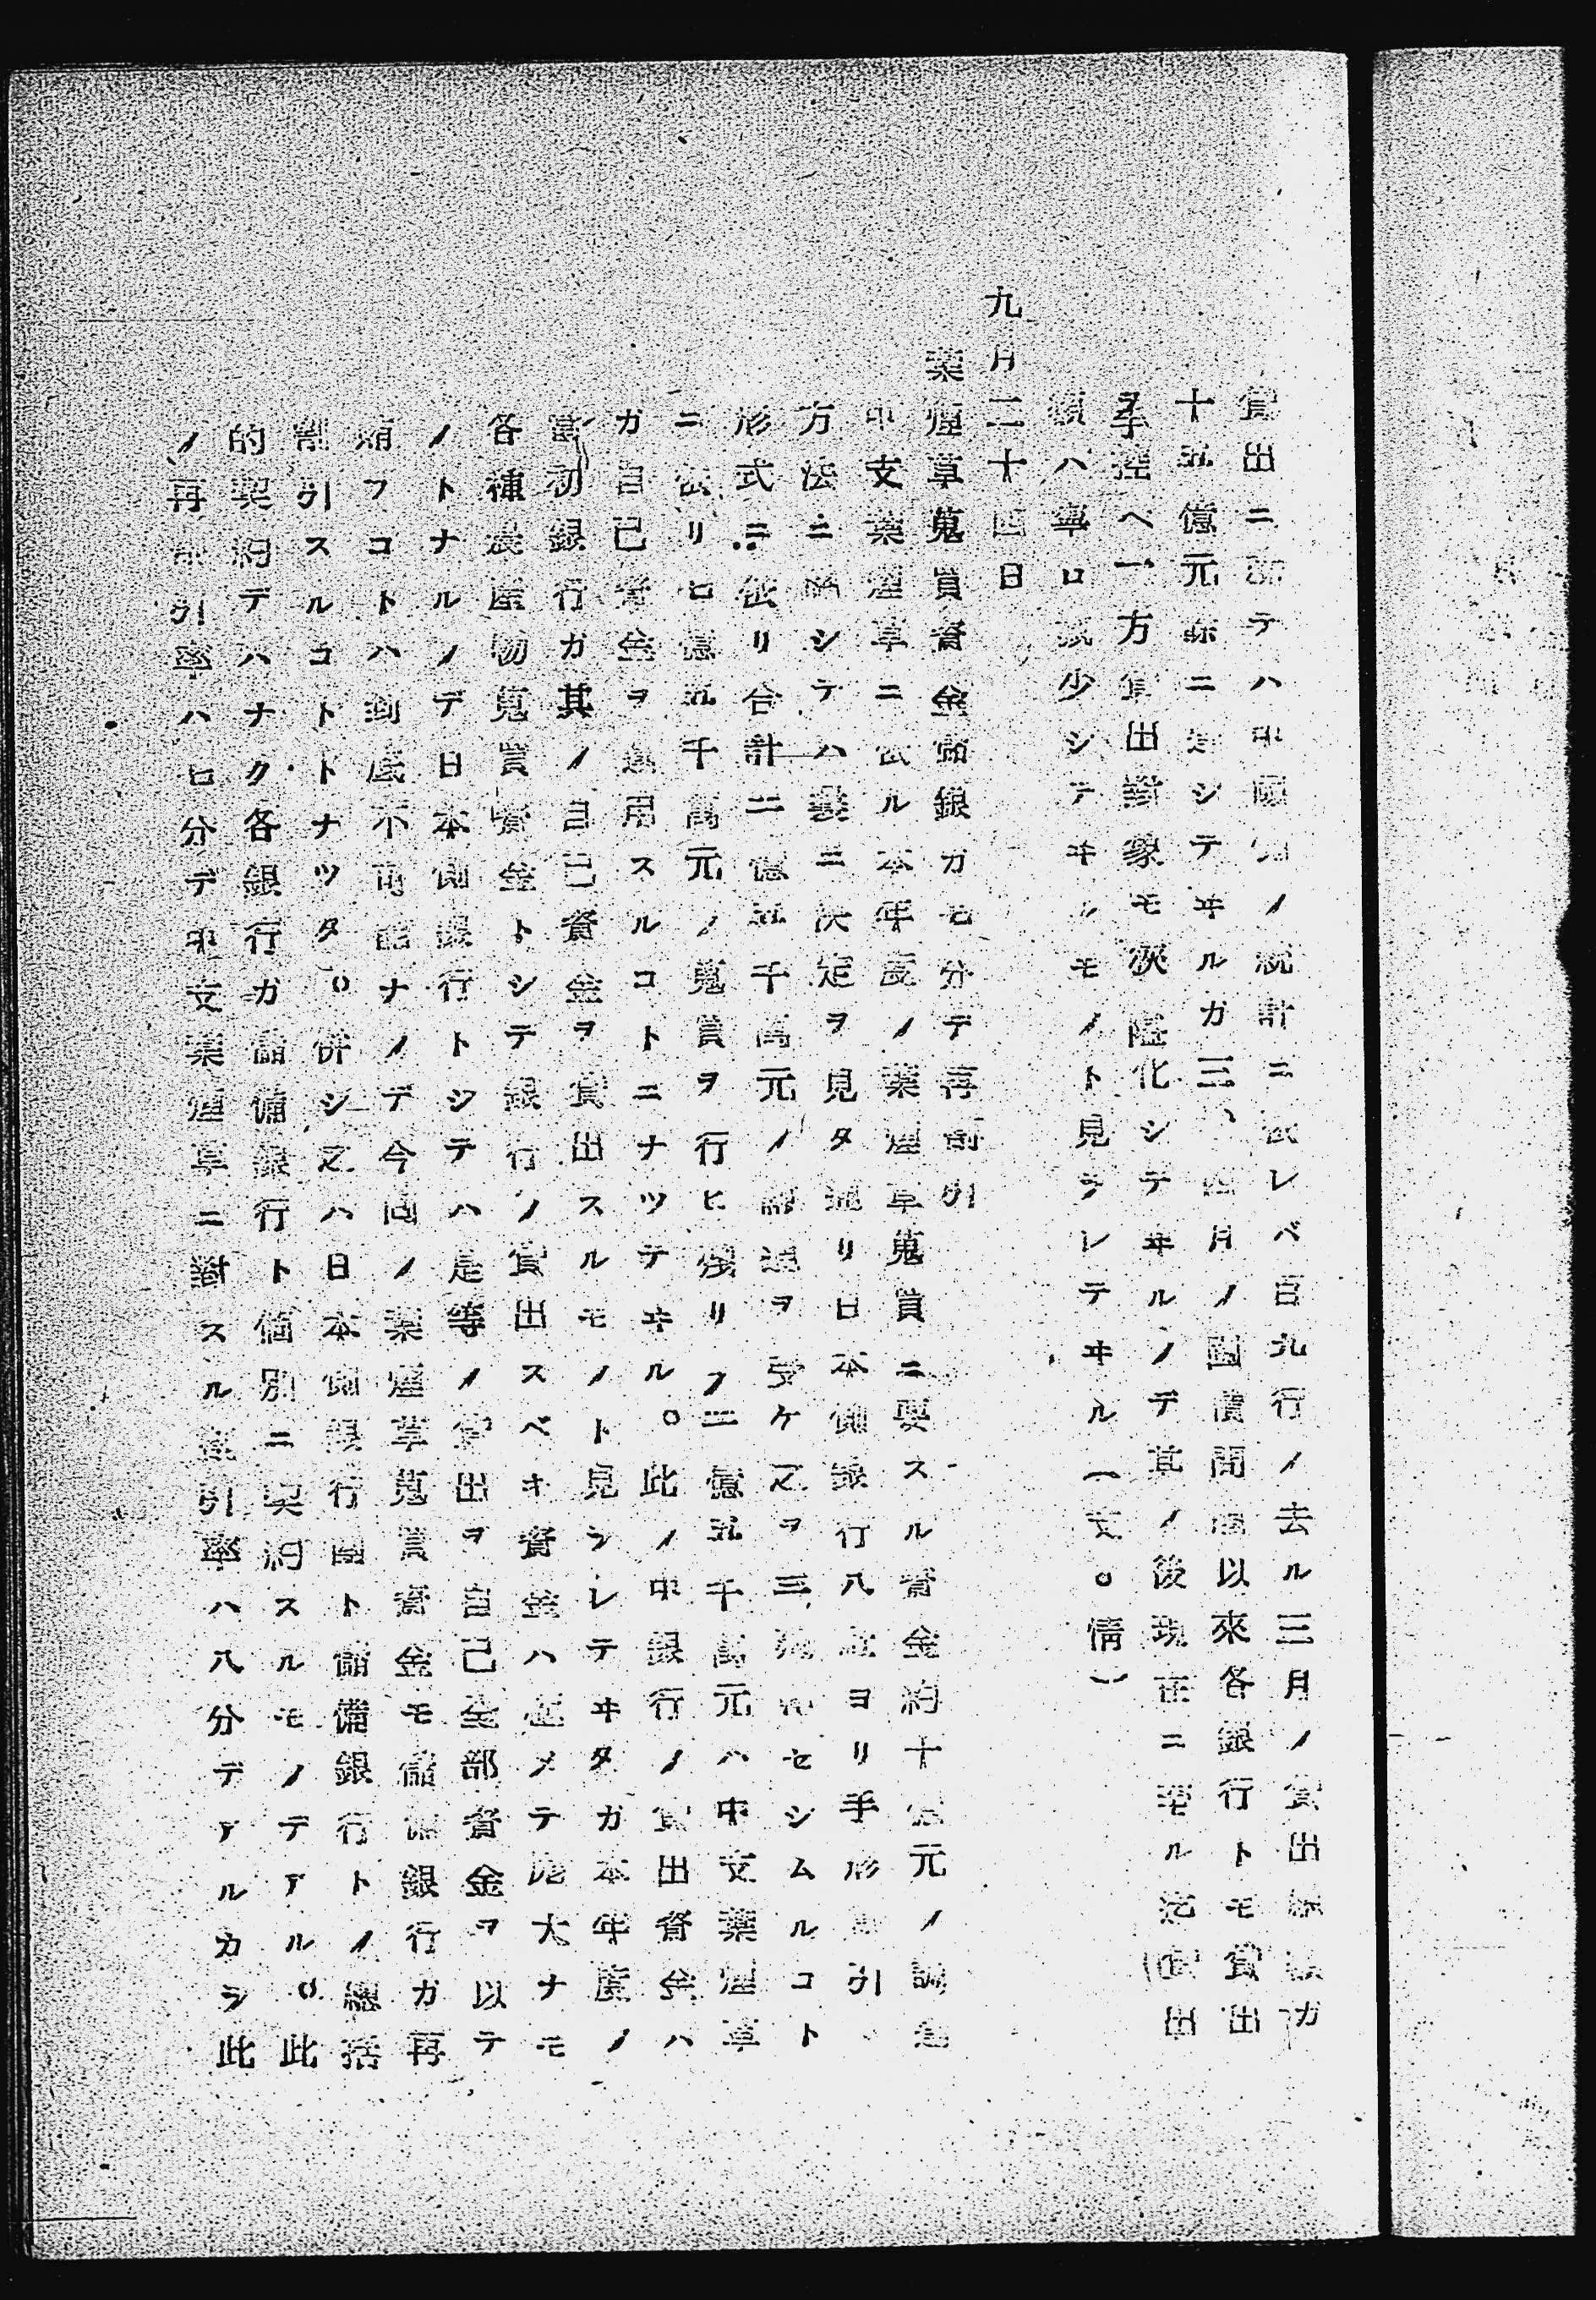 貸出ニ就テハ中國側ノ統計ニ依レバ百九行ノ去ル三月ノ貸出總額ガ
十五億元餘ニ達シテヰルガ三、四月ノ國債開闢以來各銀行トモ貸出
ヲ手控ヘ一方貸出對象モ狹隘化シテヰルノデ其ノ後現在ニ至ル迄貸出
額ハ寧ロ減少シテヰルモノト見ラレテヰル(文。情)
九月二十四日
葉煙草蒐買資金儲銀ガ七分デ再割引
中支葉煙草ニ依ル本年度ノ葉煙草蒐買ニ要スル資金約十億元ノ調達
方法ニ關シテハ曩ニ決定ヲ見タ通リ日本側銀行八社ヨリ手形割引、
形式ニ依リ合計二億五千萬元ノ融通ヲ受ケ又ヲ三 セシムルコト
ニ依リ七億五千萬元ノ蒐買ヲ行ヒ殘リノ二億五千萬元ハ中支葉煙草
ガ自己資金ヲ運用スルコトニナツテヰル。此ノ中銀行ノ貸出資金ハ
當初銀行ガ其ノ自己資金ヲ貸出スルモノト見ラレテヰタガ本年度ノ
各種農產物蒐買資金トシテ銀行ノ貸出スベキ資金ハ極メテ尨大ナモ
ノトナルノデ日本側銀行トシテハ是等ノ貸出ヲ自己全部資金ヲ以テ
賄フコトハ到底不可能ナノデ今囘ノ葉煙草蒐買資金モ儲備銀行ガ再
割引スルコトトナツタ。併シ又ハ日本側銀行團ト儲備銀行トノ總括
的契約デハナク各銀行ガ儲備銀行ト個別ニ契約スルモノデアル。此
ノ再割引率ハ七分デ中支葉煙草ニ對スル割引率ハ八分デアルカラ此